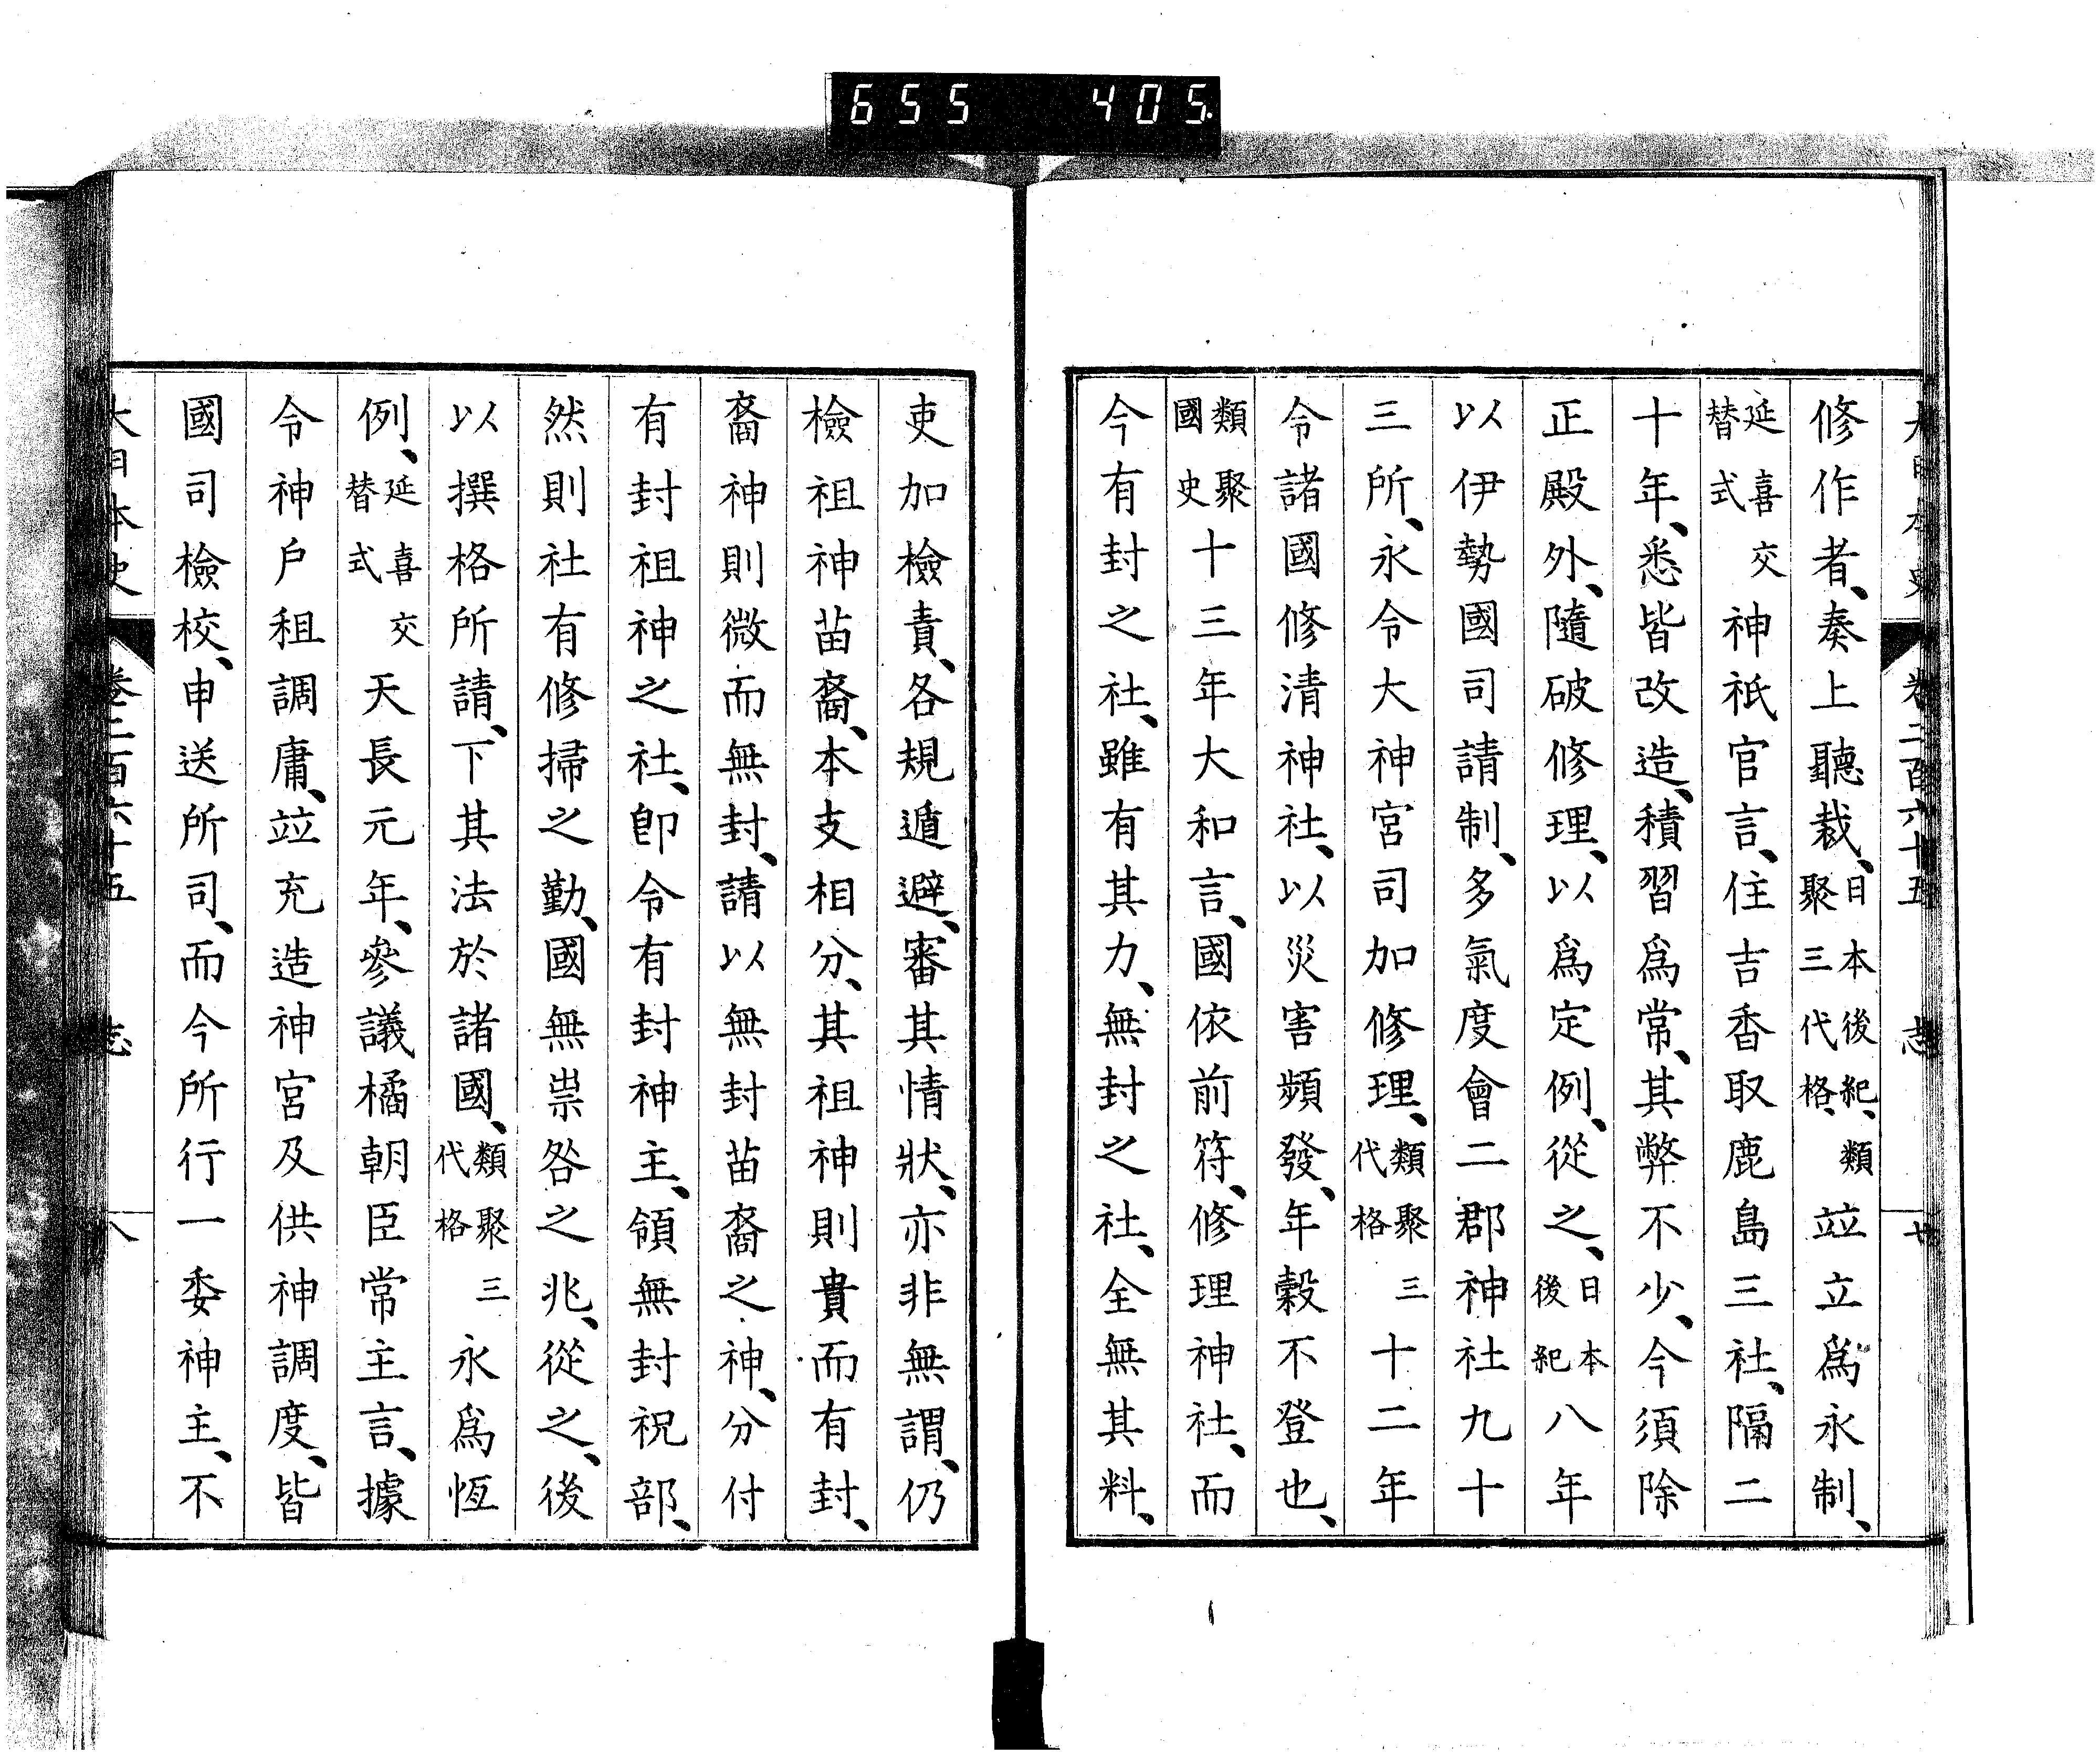 655 405
大日本史 卷二百六十五 志 廿
修作者、奏上聽裁、日本後紀、類聚三代格、竝立爲永制、
延喜交替式神祇官言、住吉香取鹿島三社、隔二
十年、悉皆改造、積習爲常、其弊不少、今須除
正殿外、隨破修理、以爲定例、從之、日本後紀八年
以伊勢國司請制、多氣度會二郡神社九十
三所、永令大神宮司加修理、類聚三代格十二年
令諸國修清神社、以災害頻發、年穀不登也、
類聚國史十三年大和言、國依前符、修理神社、而
今有封之社、雖有其力、無封之社、全無其料、
吏加檢責、各規遁避、審其情狀、亦非無謂、仍
檢祖神苗裔、本支相分、其祖神則貴而有封、
裔神則微而無封、請以無封苗裔之神、分付
有封祖神之社、卽令有封神主、領無封祝部、
然則社有修掃之勤、國無祟咎之兆、從之、後
以撰格所請、下其法於諸國、類聚三代格永爲恆
例、延喜交替式天長元年、參議橘朝臣常主言、據
令神戶租調庸、竝充造神宮及供神調度、皆
國司檢校、申送所司、而今所行一委神主、不
大日本史 卷二百六十五 志 八